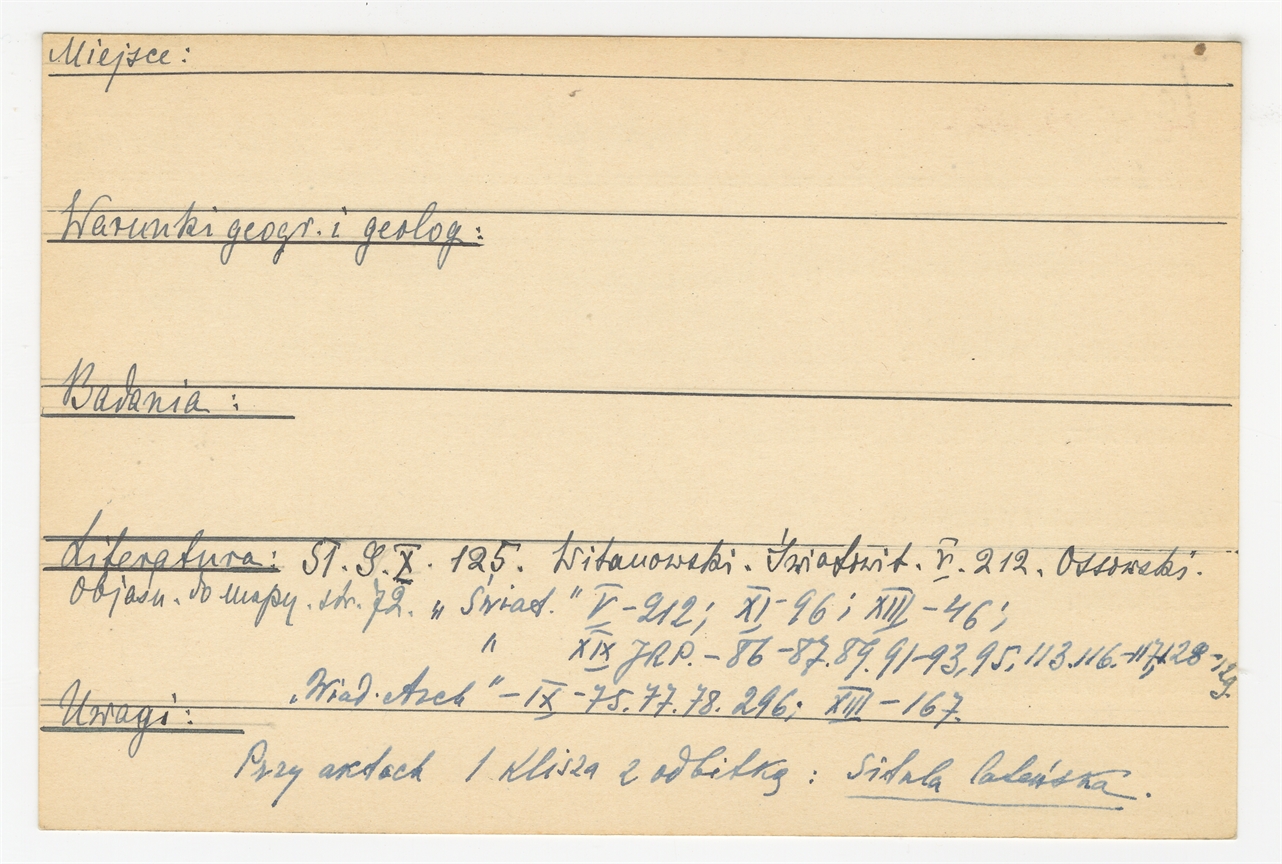 Miejsce:
Warunki geogr. i geolog.:
Badania:
Literatura: Sł. G. X. 125. Witanowski. Światowit. V. 212. Ossowski.
Objaśn. do mapy. str. 72. „Świat.” V - 212; XI - 96; XIII - 46;
" XIX J.R.P. - 86 - 87. 89. 91-93, 95, 113. 116. - 117, 128 - 129.
„Wiad. Arch” - IX - 75. 77. 78. 296; XIII - 167.
Uwagi:
Przy aktach 1 klisza z odbitką: Situla lateńska.